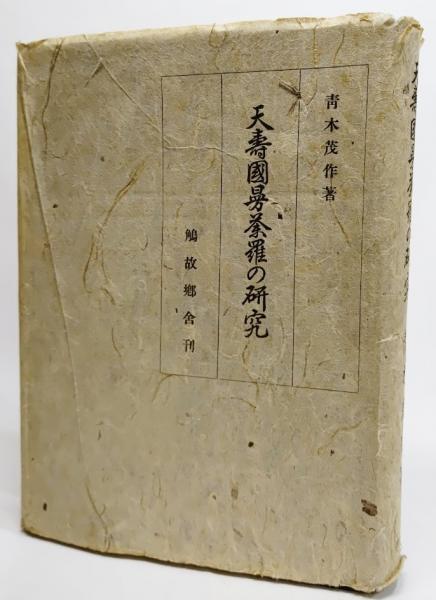 青木茂作著
天壽國曼荼羅の研究
鵤故鄕舍刊
天壽國曼荼羅の研究